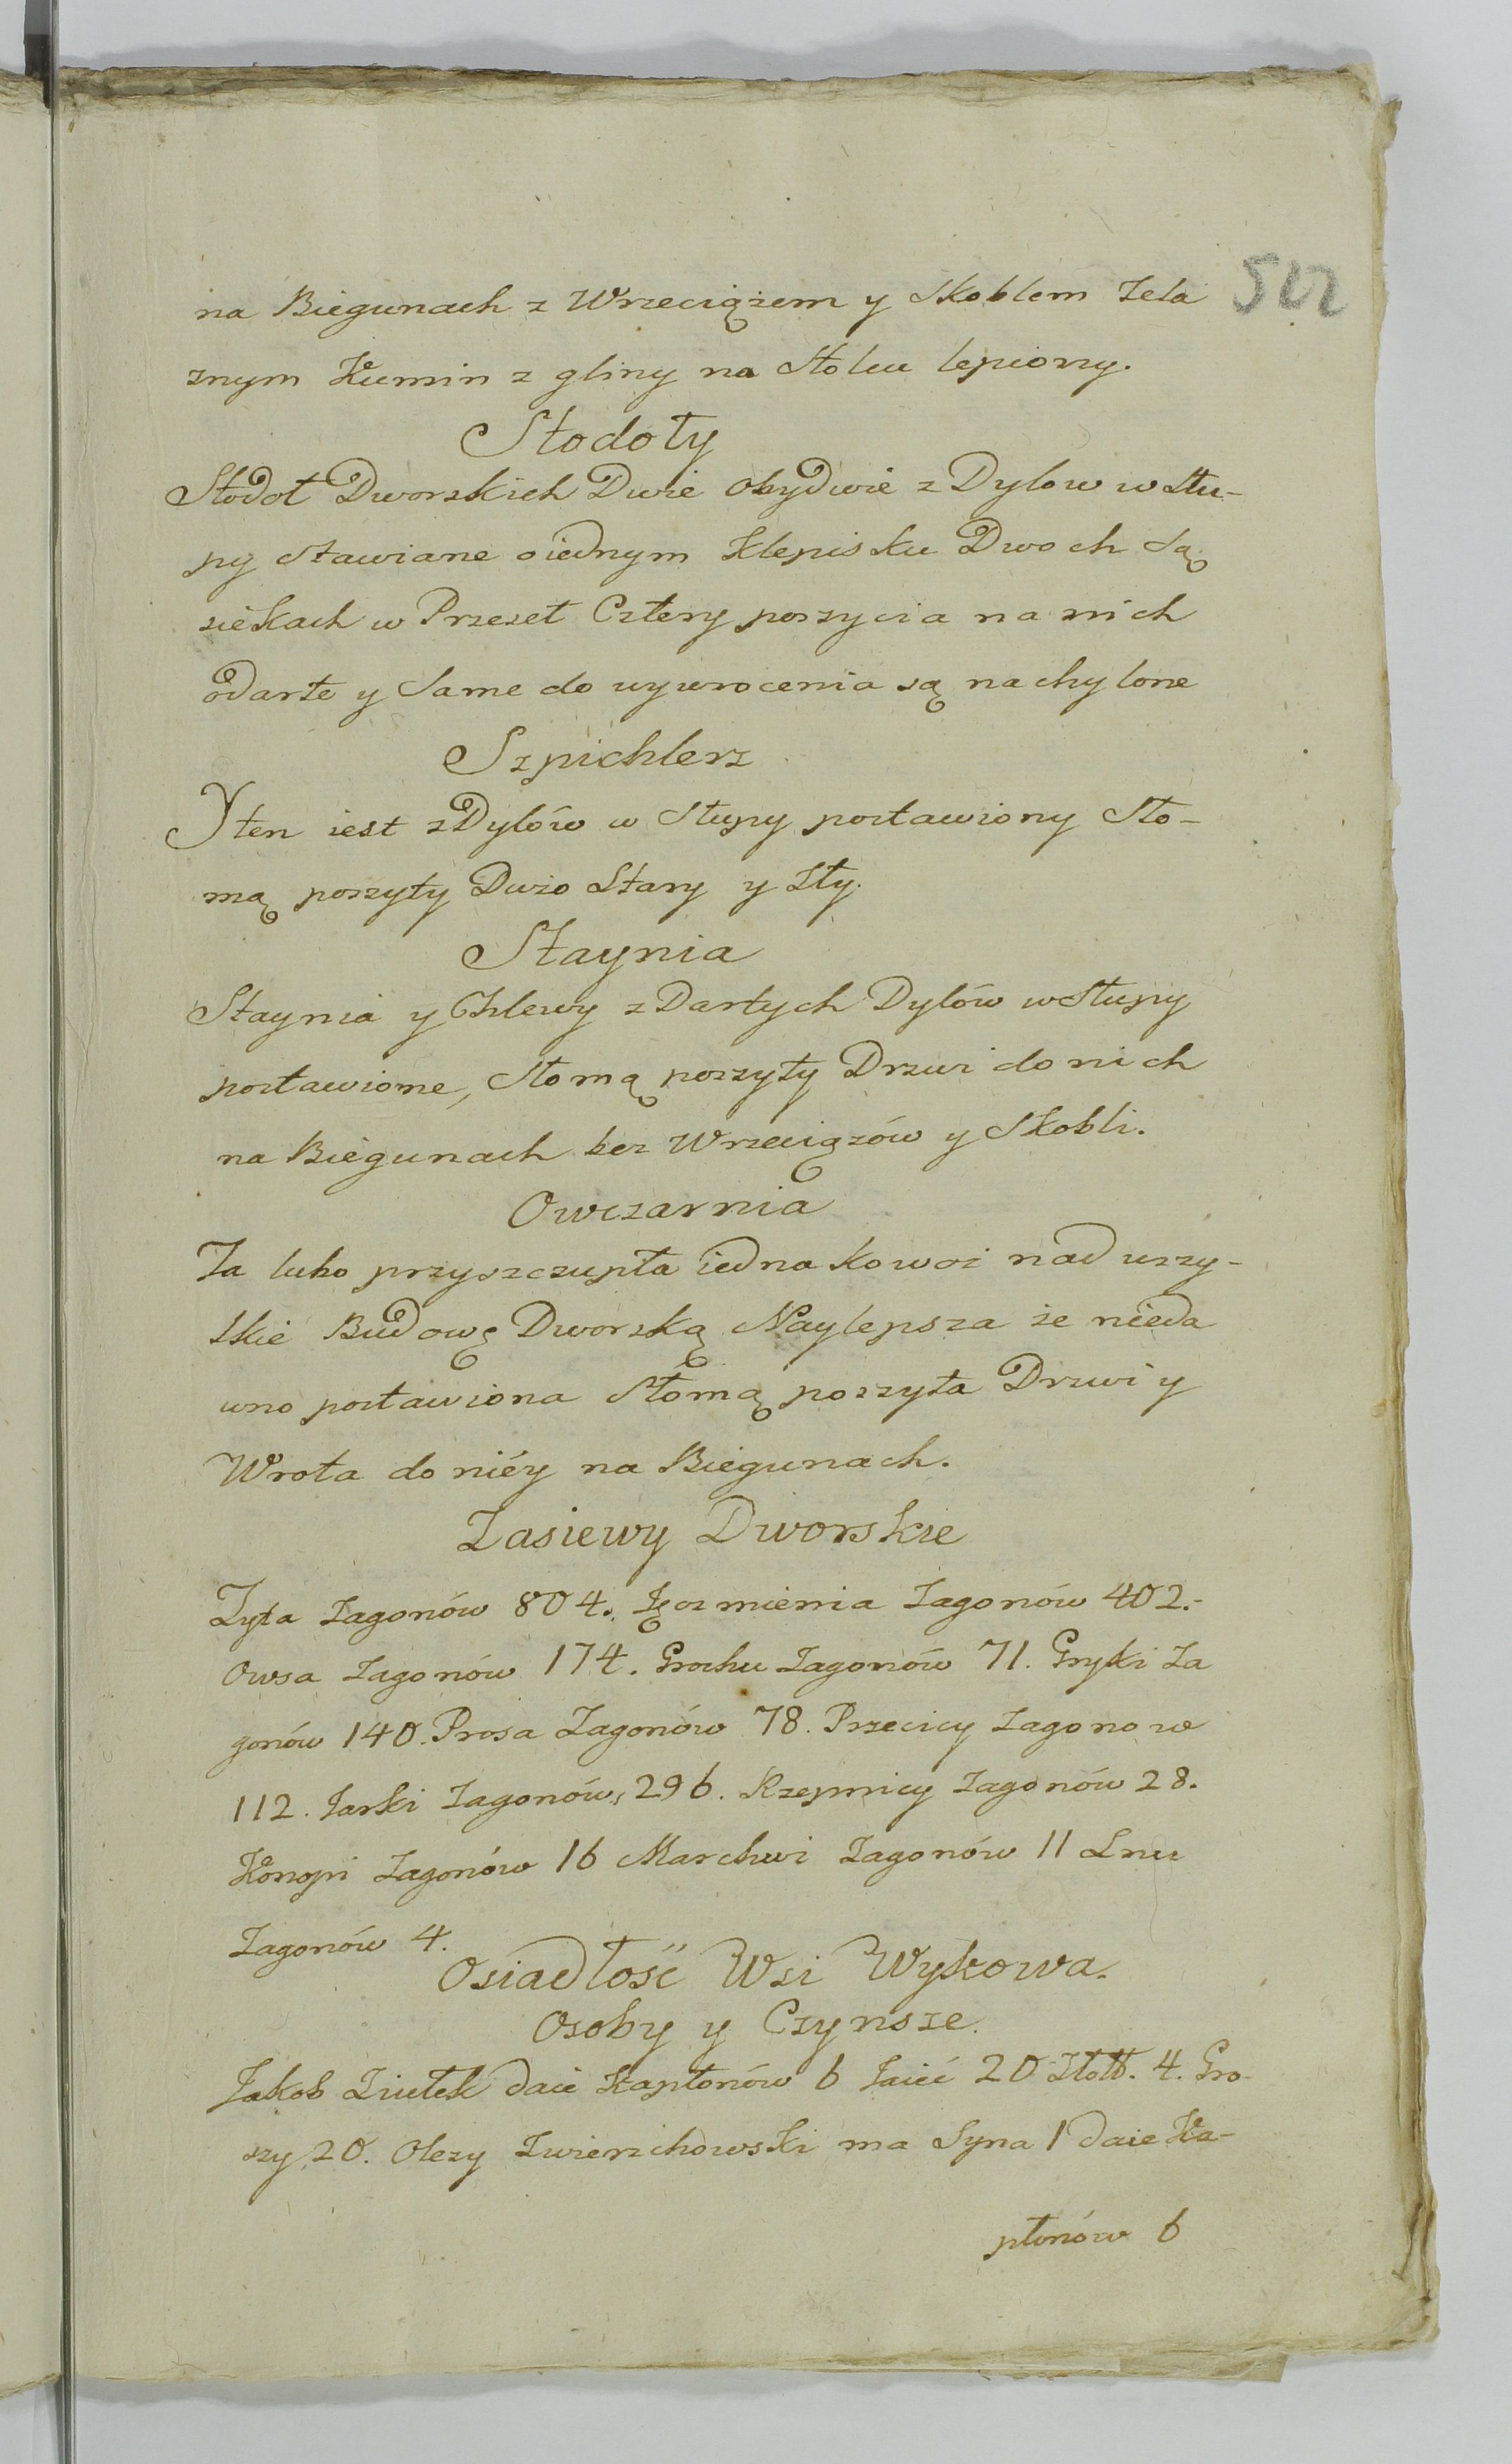 512
na Biegunach z Wrzeciążem y Skoblem Zela
znym Kumin z gliny na Stolcu lepiony.
Stodoły
Stodoł Dworskich Dwie obydwie z Dylow w Słu-
py stawiane o iednym klepisku Dwoch Są
siekach w Przeset Cztery poszycia na nich
odarte y Same do wywrocenia są nachylone
Szpichlerz
Y ten iest z Dylów w Słupy postawiony Sło-
mą poszyty Dużo Stary y Zły.
Staynia
Staynia y Chlewy z Dartych Dylów w Słupy
postawione, Słomą poszyty Drzwi do nich
na Biegunach bez Wrzeciązów y Skobli.
Owczarnia
Ta lubo przyszczupła iednakowoz nad wszy-
stkie Budowę Dworską Naylepsza że nieda
wno postawiona Słomą poszyta Drzwi y
Wrota do niéy na Biegunach.
Zasiewy Dworskie
Zyta Zagonów 804. Jęczmienia Zagonów 402.-
Owsa Zagonów 174. Grochu Zagonów 71. Gryki Za
gonów 140. Prosa Zagonów 78. Przecicy Zagonow
112. Jarki Zagonów 296. Rzepnicy Zagonów 28.
Konopi Zagonów 16 Marchwi Zagonów 11 Lnu
Zagonów 4.
Osiadłość Wsi Wykowa.
Osoby y Czynsze.
Jakob Ziutek daie Kapłonów 6 Jaić 20 Złott. 4. Gro-
szy 20. Olexy Zwierzchowski ma Syna 1 daie Ka-
płonów 6